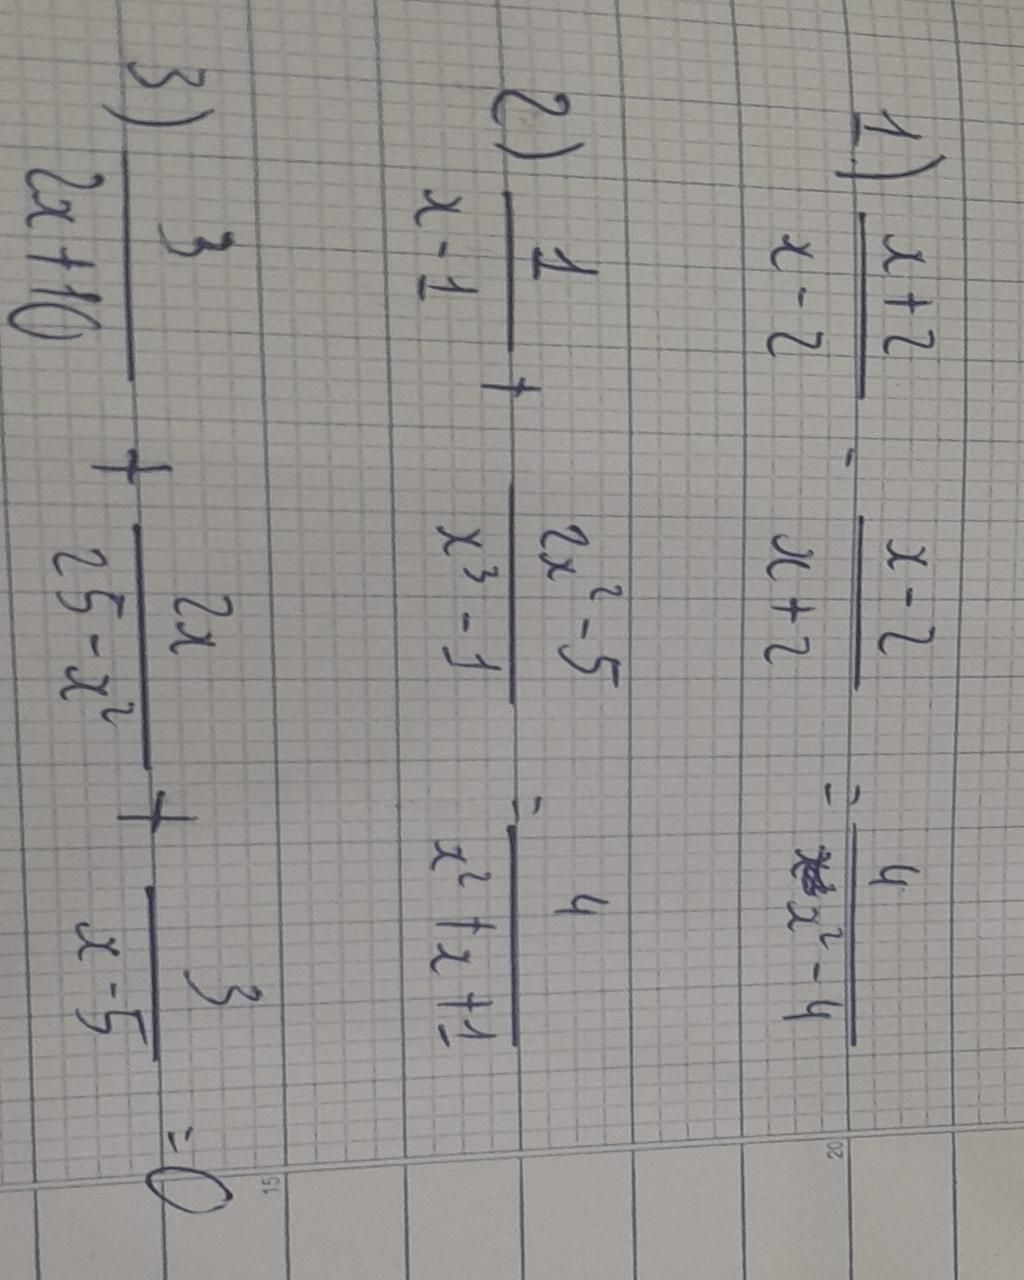 1) (x+2)/(x-2) - (x-2)/(x+2) = 4/(x²-4)
2) 1/(x-1) + (2x²-5)/(x³-1) = 4/(x²+x+1)
3) 3/(2x+10) + 2x/(25-x²) + 3/(x-5) = 0
20
15